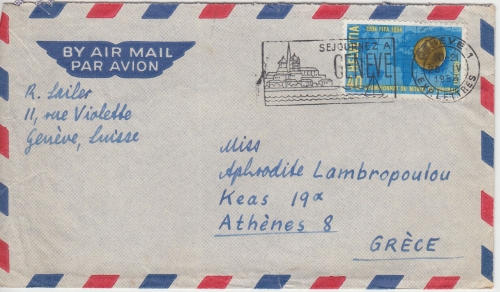 BY AIR MAIL
PAR AVION
R. Sailer
11, rue Violette
Genève, Suisse
SEJOURNEZ A
GENÈVE
HELVETIA
1904 FIFA 1954
GENÈVE 1
LETTRES
Miss
Aphrodite Lambropoulou
Keas 19α
Athènes 8
GRÈCE